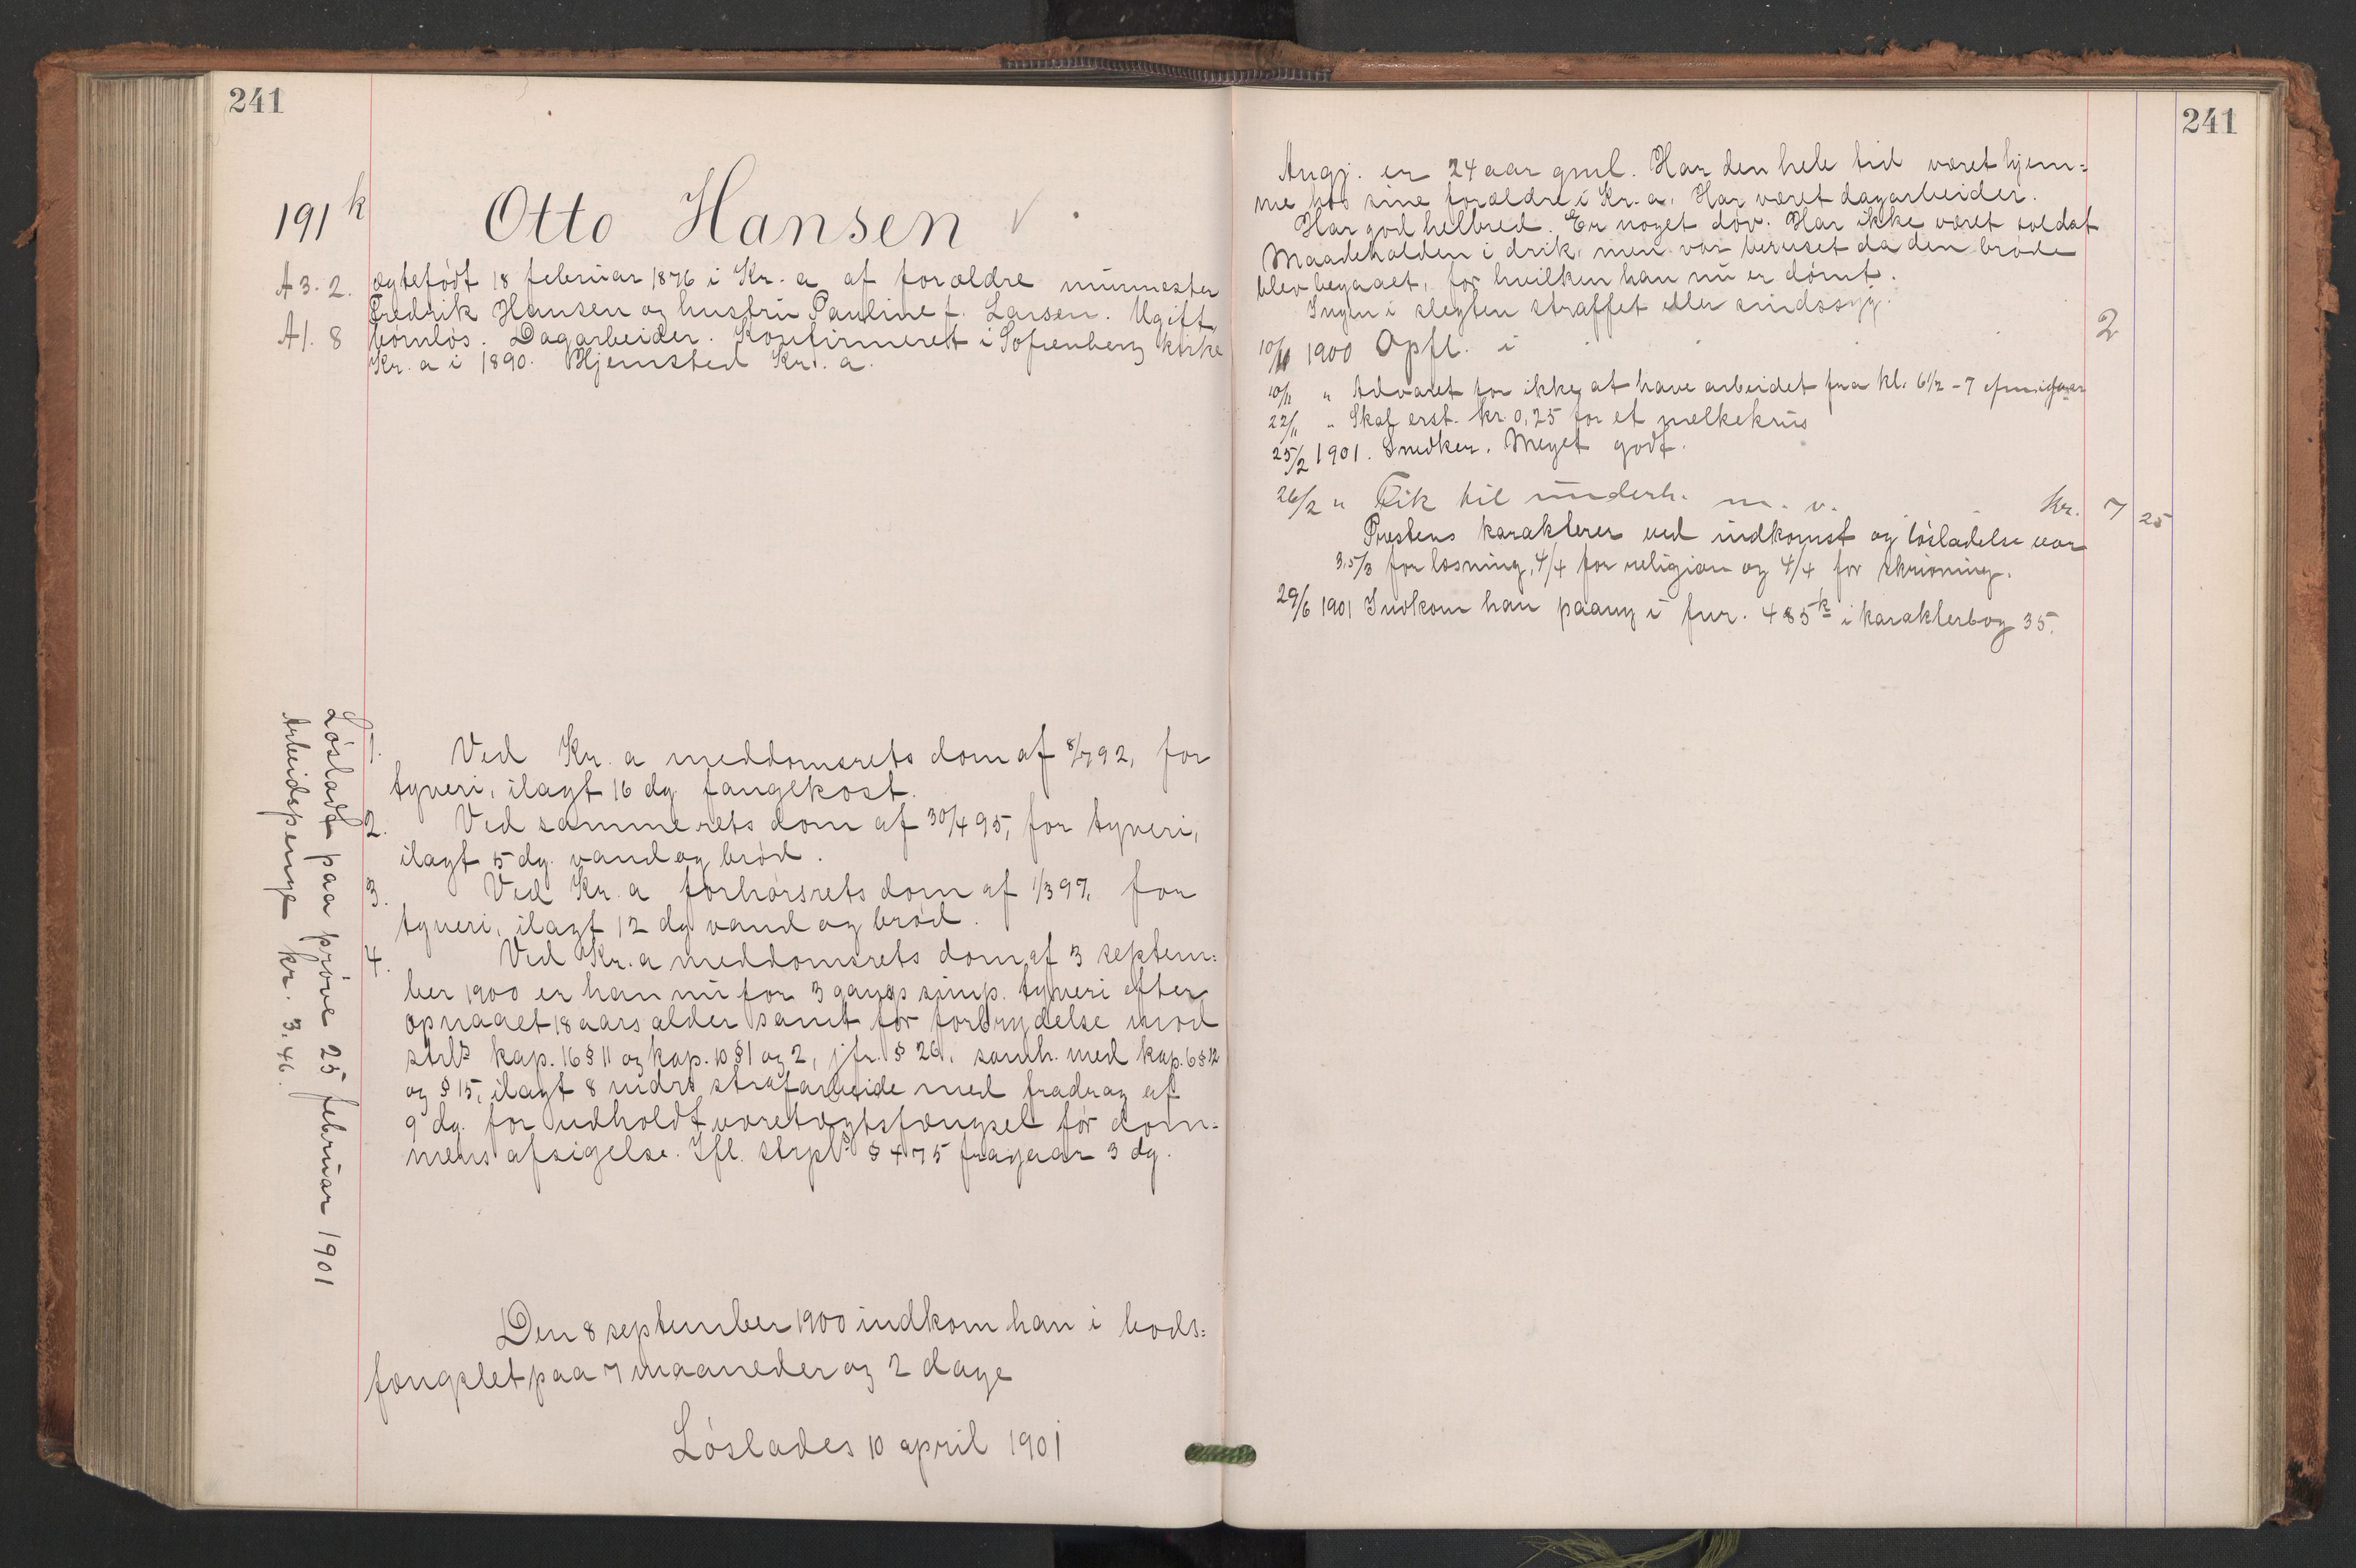 241
191 k
Otto Hansen
A 3. 2.
A1. 8
ægtefødt 18 februar 1876 i Kr. a af forældre murmester
Fredrik Hansen og hustru Pauline f. Larsen. Ugift,
børnløs. Dagarbeider. Konfirmeret i Sofienberg kirke
Kr. a i 1890. Hjemsted Kr. a.
1. Ved Kr. a meddomsrets dom af 8/7 92, for
tyveri, ilagt 16 dg fangekost.
2. Ved samme rets dom af 30/4 95, for tyveri,
ilagt 5 dg. vand og brød.
3. Ved Kr. a forhørsrets dom af 1/3 97, for
tyveri, ilagt 12 dg vand og brød.
4. Ved Kr. a meddomsrets dom af 3 septem=
ber 1900 er han nu for 3 gangs simp. tyveri efter
opnaaet 18 aars alder samt for forbrydelse mod
strl's kap. 16 § 11 og kap. 10 § 1 og 2, jfr. § 26, samh. med kap. 6 § 12
og § 15, ilagt 8 mdrs strafarbeide med fradrag af
9 dg. for udholdt varetægtsfængsel før dom=
mens afsigelse. Ifl. strpl's § 475 fragaar 3 dg.
Den 8 september 1900 indkom han i bods=
fængslet paa 7 maaneder og 2 dage
Løslades 10 april 1901
Løsladt paa prøve 25 februar 1901
Arbeidspenge kr. 3.46.
241
Angj. er 24 aar gml. Har den hele tid været hjem=
me hos sine forældre i Kr. a. Har været dagarbeider.
Har god helbred. Er noget døv. Har ikke været soldat
Maadeholden i drik, men var beruset da den brøde
blev begaaet, for hvilken han nu er dømt.
Ingen i slegten straffet eller sindssyg.
10/11 1900 Opfl. i 2
10/11 " Advaret for ikke at have arbeidet fra kl. 6 1/2 - 7 efm igaar
22/11 " Skal erst. kr 0,25 for et melkekrus
25/2 1901. Snedker. Meget godt.
26/2 " Fik til underh. m. v. Kr. 7 25
Prestens karakterer ved indkomst og løsladelse var
3,5/3 for læsning, 4/4 for religion og 4/4 for skrivning.
29/6 1901 Indkom han paany i fnr. 485 k i karakterbog 35.